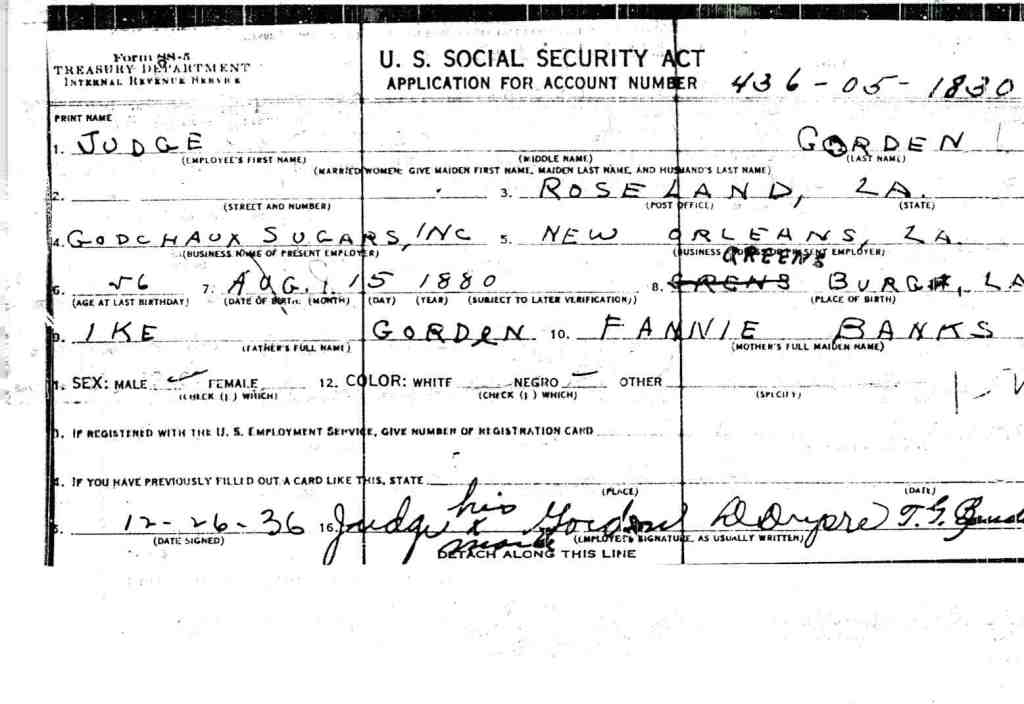 Form SS-5
TREASURY DEPARTMENT
INTERNAL REVENUE SERVICE
U. S. SOCIAL SECURITY ACT
APPLICATION FOR ACCOUNT NUMBER
436-05-1830
PRINT NAME
1. JUDGE GORDEN
(EMPLOYEE'S FIRST NAME) (MIDDLE NAME) (LAST NAME)
(MARRIED WOMEN: GIVE MAIDEN FIRST NAME, MAIDEN LAST NAME, AND HUSBAND'S LAST NAME)
2. 3. ROSELAND, LA.
(STREET AND NUMBER) (POST OFFICE) (STATE)
4. GODCHAUX SUGARS, INC 5. NEW ORLEANS, LA.
(BUSINESS NAME OF PRESENT EMPLOYER) (BUSINESS ADDRESS OF PRESENT EMPLOYER)
GREENS
6. 56 7. AUG. 15 1880 8. GRENS BURG, LA
(AGE AT LAST BIRTHDAY) (DATE OF BIRTH: (MONTH) (DAY) (YEAR) (SUBJECT TO LATER VERIFICATION)) (PLACE OF BIRTH)
9. IKE GORDEN 10. FANNIE BANKS
(FATHER'S FULL NAME) (MOTHER'S FULL MAIDEN NAME)
1. SEX: MALE FEMALE 12. COLOR: WHITE NEGRO OTHER
(CHECK (√) WHICH) (CHECK (√) WHICH) (SPECIFY)
3. IF REGISTERED WITH THE U. S. EMPLOYMENT SERVICE, GIVE NUMBER OF REGISTRATION CARD
4. IF YOU HAVE PREVIOUSLY FILLED OUT A CARD LIKE THIS, STATE
(PLACE) (DATE)
his
5. 12-26-36 16. Judge x Gorden T. G.
mark
(DATE SIGNED) (EMPLOYEE'S SIGNATURE, AS USUALLY WRITTEN)
DETACH ALONG THIS LINE